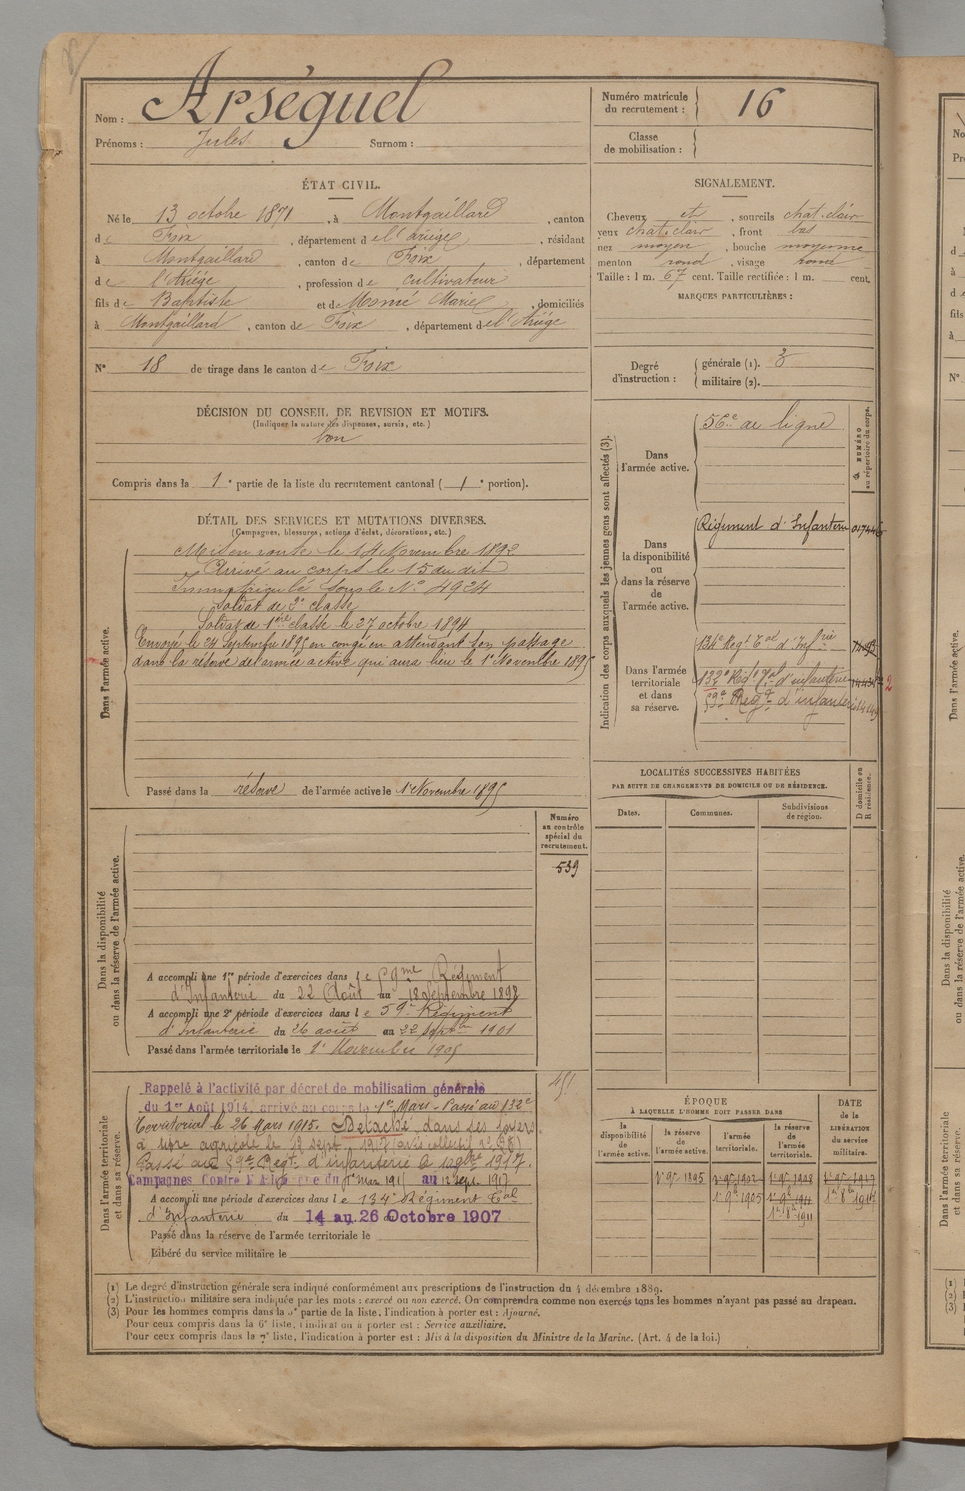 Nom : Arséguel
Prénoms : Jules Surnom :
Numéro matricule du recrutement : 16
Classe de mobilisation :
ÉTAT CIVIL.
Né le 13 octobre 1871, à Montgaillard, canton
de Foix, département de l'Ariège, résidant
à Montgaillard, canton de Foix, département
de l'Ariège, profession de cultivateur
fils de Baptiste et de Marie, domiciliés
à Montgaillard, canton de Foix, département de l'Ariège
N° 18 de tirage dans le canton de Foix
SIGNALEMENT.
Cheveux et, sourcils chat. clair
yeux chat. clair, front bas
nez moyen, bouche moyenne
menton rond, visage rond
Taille : 1 m. 67 cent. Taille rectifiée : 1 m. cent.
MARQUES PARTICULIÈRES :
Degré d'instruction : générale (1). 3
militaire (2).
DÉCISION DU CONSEIL DE REVISION ET MOTIFS.
(Indiquer la nature des dispenses, sursis, etc.)
bon
Compris dans la 1e partie de la liste du recrutement cantonal (1e portion).
DÉTAIL DES SERVICES ET MUTATIONS DIVERSES.
(Campagnes, blessures, actions d'éclat, décorations, etc.)
Dans l'armée active.
Mis en route le 14 Novembre 1892
Arrivé au corps le 15 du dit
Immatriculé sous le N° 4924
Soldat de 2e classe
Soldat de 1ère classe le 27 octobre 1894
Envoyé le 24 Septembre 1895 en congé en attendant son passage
dans la réserve de l'armée active qui aura lieu le 1er Novembre 1895
Passé dans la réserve de l'armée active le 1er Novembre 1895
Indication des corps auxquels les jeunes gens sont affectés (3).
NUMÉRO au répertoire du corps.
Dans l'armée active.
56e de ligne
Dans la disponibilité ou dans la réserve de l'armée active.
Régiment d'Infanterie
Dans l'armée territoriale et dans sa réserve.
134e Régt Tal d'Infrie
132e Régt Tal d'infanterie
59e Régt d'infanterie
LOCALITÉS SUCCESSIVES HABITÉES
PAR SUITE DE CHANGEMENTS DE DOMICILE OU DE RÉSIDENCE.
Dates. Communes. Subdivisions de région. D domicile ou R résidence.
Dans la disponibilité ou dans la réserve de l'armée active.
Numéro au contrôle spécial du recrutement.
539
A accompli une 1re période d'exercices dans le 59me Régiment
d'Infanterie du 22 Août au 18 Septembre 1898
A accompli une 2e période d'exercices dans le 59e Régiment
d'Infanterie du 26 août au 22 Septbre 1901
Passé dans l'armée territoriale le 1er Novembre 1905
Dans l'armée territoriale et dans sa réserve.
Rappelé à l'activité par décret de mobilisation générale
du 1er Août 1914, arrivé au corps le 1er Mars. Passé au 132e
Territorial le 26 Mars 1915. Détaché dans ses foyers
à titre agricole le 12 sept 1917 (avis collectif
Passé au 59e Régt d'infanterie le 1917.
Campagnes Contre l'Allemagne du 1er Mars 1915 au 12 Sept 1917
A accompli une période d'exercices dans le 134e Régiment Tal
d'Infanterie du 14 au 26 Octobre 1907
Passé dans la réserve de l'armée territoriale le
Libéré du service militaire le
ÉPOQUE
À LAQUELLE L'HOMME DOIT PASSER DANS
la disponibilité de l'armée active. la réserve de l'armée active. l'armée territoriale. la réserve de l'armée territoriale.
DATE de la LIBÉRATION du service militaire.
1er 9bre 1895 1er 9bre 1902 1er 9bre 1908 1er 9bre 1917
1er 9bre 1905 1er 9bre 1911
(1) Le degré d'instruction générale sera indiqué conformément aux prescriptions de l'instruction du 4 décembre 1889.
(2) L'instruction militaire sera indiquée par les mots : exercé ou non exercé. On comprendra comme non exercés tous les hommes n'ayant pas passé au drapeau.
(3) Pour les hommes compris dans la 5e partie de la liste, l'indication à porter est : Ajourné.
Pour ceux compris dans la 6e liste, l'indication à porter est : Service auxiliaire.
Pour ceux compris dans la 7e liste, l'indication à porter est : Mis à la disposition du Ministre de la Marine. (Art. 4 de la loi.)